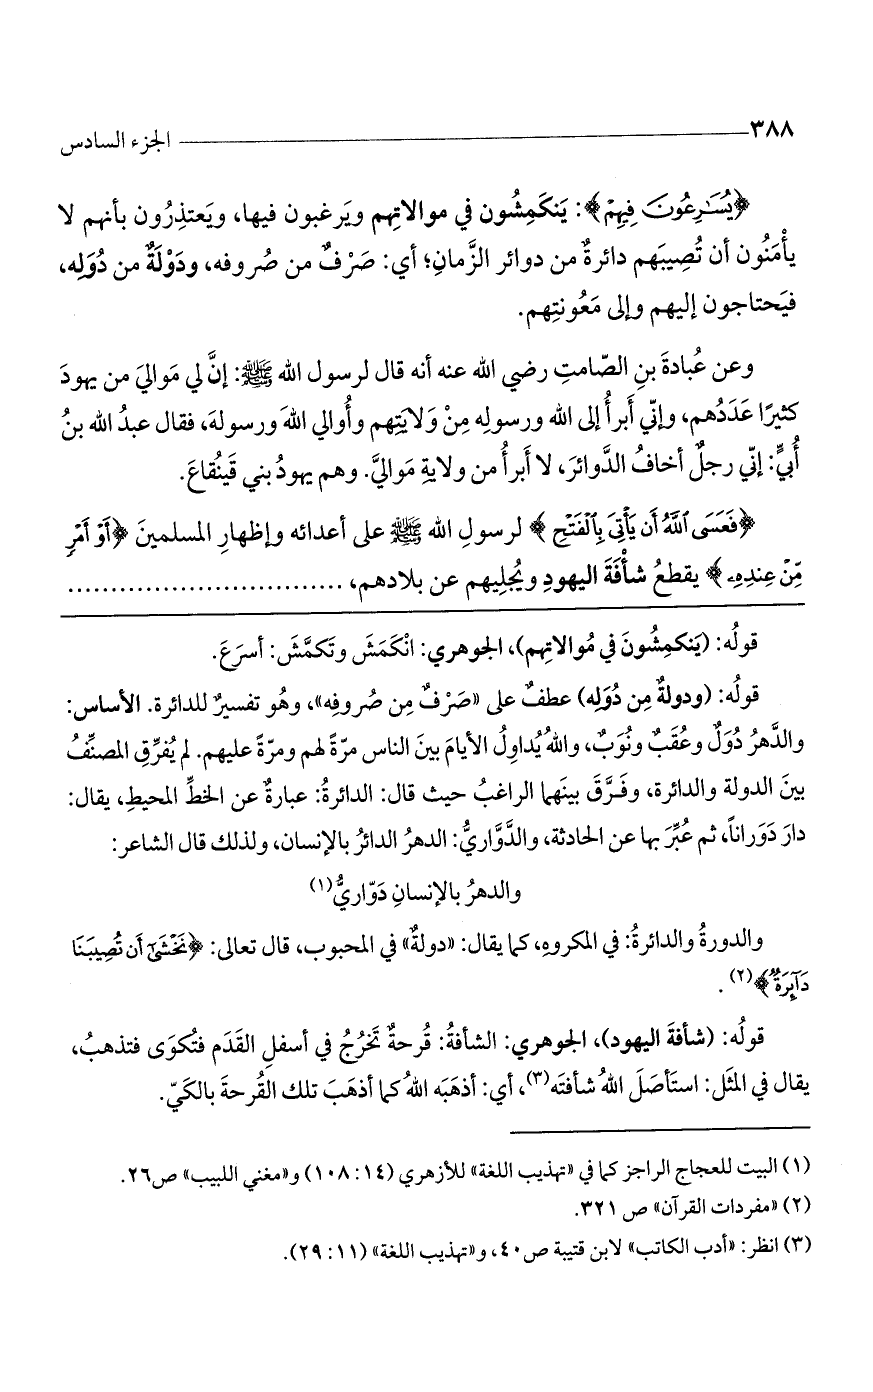 ٣٨٨ الجزء السادس
﴿يُسَٰرِعُونَ فِيهِمْ﴾: يَنكَمِشُون في موالاتِهم ويَرغبون فيها، ويَعتذِرُون بأنهم لا
يأْمَنُون أن تُصِيبَهم دائرةٌ من دوائر الزَّمانِ؛ أي: صَرْفٌ من صُروفه، ودَوْلَةٌ من دُوَلِه،
فيَحتاجون إليهم وإلى مَعُونتِهم.
وعن عُبادةَ بنِ الصّامتِ رضي الله عنه أنه قال لرسول الله ﷺ: إنَّ لي مَواليَ من يهودَ
كثيرًا عَدَدُهم، وإنّي أَبرأُ إلى الله ورسولِه مِنْ وَلايَتِهم وأُوالي اللهَ ورسولهَ، فقال عبدُ الله بنُ
أُبيٍّ: إنّي رجلٌ أخافُ الدَّوائرَ، لا أَبرأُ من ولايةِ مَواليَّ. وهم يهودُ بني قَينُقاعَ.
﴿فَعَسَى ٱللَّهُ أَن يَأْتِىَ بِٱلْفَتْحِ﴾ لرسولِ الله ﷺ على أعدائه وإظهارِ المسلمينَ ﴿أَوْ أَمْرٍ
مِّنْ عِندِهِۦ﴾ يقطعُ شأْفَةَ اليهودِ ويُجلِيهم عن بلادهم، ................................
قولُه: (يَنكمِشُونَ في مُوالاتِهم)، الجوهري: انْكَمَشَ وتَكمَّشَ: أسرَعَ.
قولُه: (ودولةٌ مِن دُوَلِه) عطفٌ على «صَرْفٌ مِن صُروفِه»، وهُو تفسيرٌ للدائرة. الأساس:
والدَّهرُ دُوَلٌ وعُقَبٌ ونُوَبٌ، واللهُ يُداوِلُ الأيامَ بينَ الناس مرّةً لهم ومرّةً عليهم. لم يُفرِّقِ المصنِّفُ
بينَ الدولة والدائرة، وفَرَّقَ بينَهما الراغبُ حيث قال: الدائرةُ: عبارةٌ عن الخطِّ المحيطِ، يقال:
دارَ دَوَراناً، ثم عُبِّرَ بها عن الحادثة، والدَّوَّاريُّ: الدهرُ الدائرُ بالإنسان، ولذلك قال الشاعر:
والدهرُ بالإنسانِ دَوّاريُّ(١)
والدورةُ والدائرةُ: في المكروهِ، كما يقال: «دولةٌ» في المحبوب، قال تعالى: ﴿نَخْشَىٰٓ أَن تُصِيبَنَا
دَآئِرَةٌ﴾(٢).
قولُه: (شأفةَ اليهود)، الجوهري: الشأفةُ: قُرحةٌ تَخرُجُ في أسفلِ القَدَم فتُكوَى فتذهبُ،
يقال في المثَل: استَأصَلَ اللهُ شأفتَه(٣)، أي: أذهَبَه اللهُ كما أذهَبَ تلك القُرحةَ بالكَيّ.
(١) البيت للعجاج الراجز كما في «تهذيب اللغة» للأزهري (١٤: ١٠٨) و«مغني اللبيب» ص٢٦.
(٢) «مفردات القرآن» ص ٣٢١.
(٣) انظر: «أدب الكاتب» لابن قتيبة ص٤٠، و«تهذيب اللغة» (١١: ٢٩).